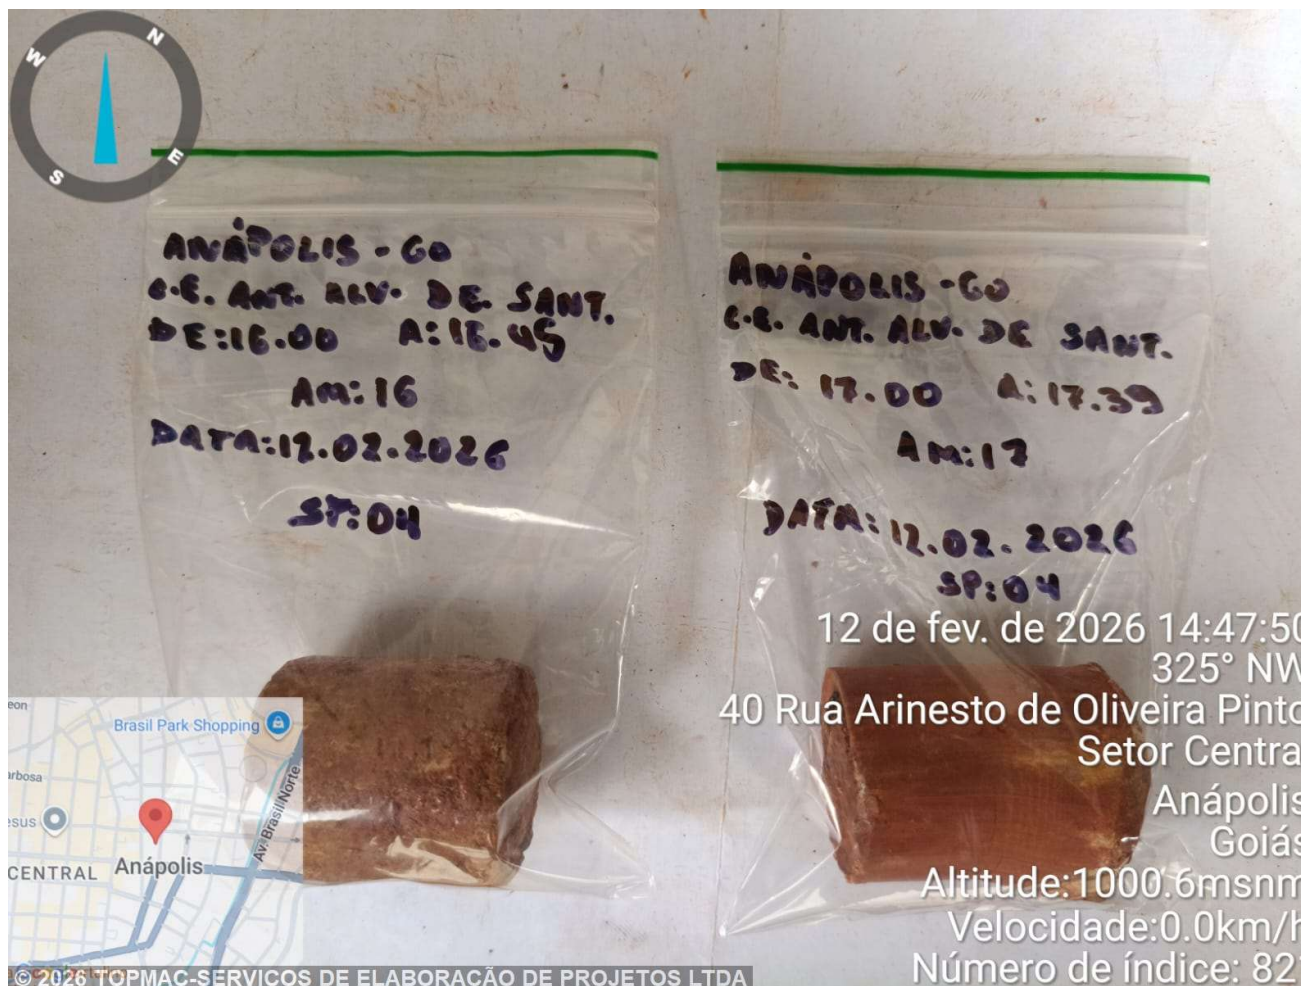 N
W
E
S
ANÁPOLIS - GO
C.E. ANT. ALV. DE SANT.
DE:16.00 A:16.45
AM:16
DATA:12.02.2026
SP:04
ANÁPOLIS - GO
C.E. ANT. ALV. DE SANT.
DE: 17.00 A:17.39
AM:17
DATA:12.02.2026
SP:04
12 de fev. de 2026 14:47:50
325° NW
40 Rua Arinesto de Oliveira Pinto
Setor Central
Anápolis
Goiás
Altitude:1000.6msnm
Velocidade:0.0km/h
Número de índice: 821
Brasil Park Shopping
Av. Brasil Norte
CENTRAL
Anápolis
© 2026 TOPMAC-SERVIÇOS DE ELABORAÇÃO DE PROJETOS LTDA